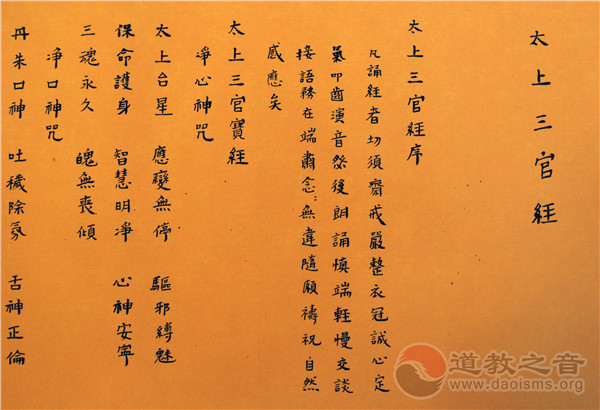 太上三官經
太上三官經序
凡誦經者切須齋戒嚴整衣冠誠心定
氣叩齒演音然後朗誦慎端輕慢交談
接語務在端肅念念無違隨願禱祝自然
感應矣
太上三官寶經
淨心神咒
太上台星 應變無停 驅邪縛魅
保命護身 智慧明净 心神安寧
三魂永久 魄無喪傾
净口神咒
丹朱口神 吐穢除氛 舌神正倫
道教之音
www.daoisms.org